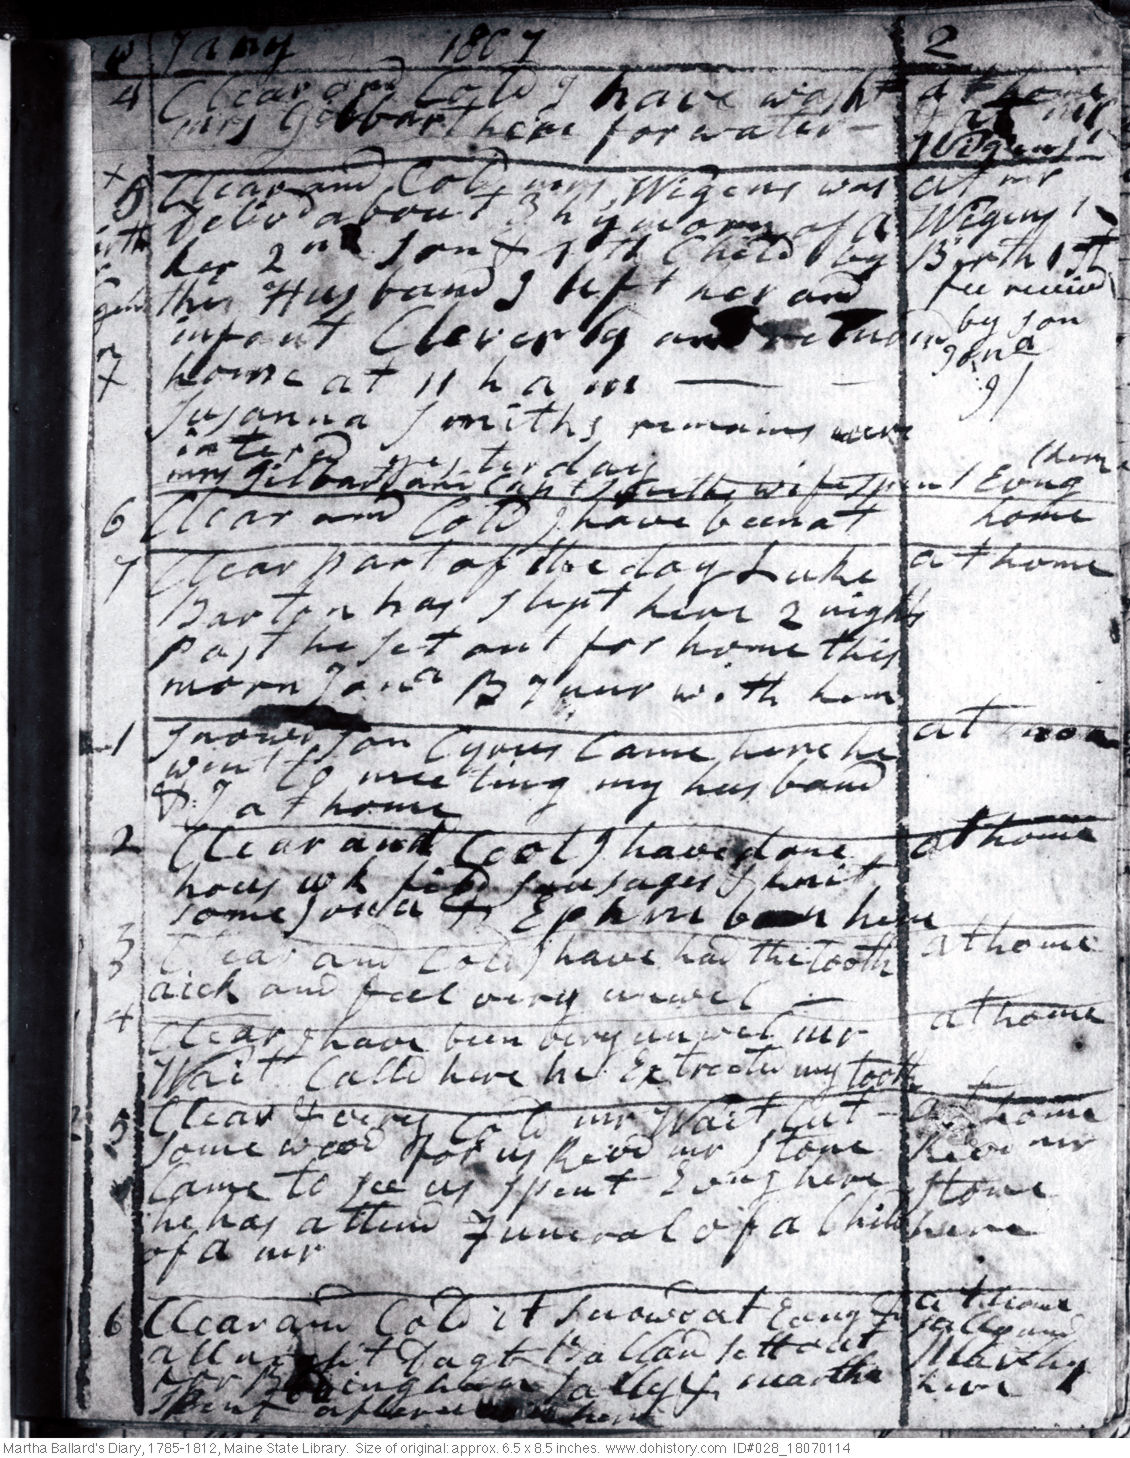 w Jany 1807 2
4 Clear and Cold I have washt at home
mrs Gilbart here for water — & at mr
Wigens
x 5 Clear and Cold mrs Wigens was at mr
delivd about 3 h y morn of a Wigens
her 2nd son & Child by Birth 1st
this Husband I left her and fee receivd
infant Cleverly and returnd by son
x home at 11 h a m — Jona
Susanna Smiths remains were 9/
interd yesterday
mrs Gilbart and Capt Smiths wife spent Evng here
6 Clear and Cold I have been at home
7 Clear part of the day Luke at home
Barton has slept here 2 nights
past he set out for home this
morn Jona B Junr with him
1 Snowd son Cyrus Came here he at home
went to meeting my husband
& I at home
2 Clear and Cool I have done at home
hous wk fild sausages & knit
some Jona & Ephm been here
3 Clear and Cold I have had the tooth at home
aick and feel very unwel —
4 Clear I have been very unwel mr at home
Wait Calld here he Extracted my tooth
5 Clear & very Cold mr Wait Cut at home
some wood for us Revd mr Stone Revd mr
Came to see us spent Evng here Stone
he has attend Funeral of a Child here
of a mr
6 Clear and Cold it Snowd at Evng & at home
all night Dagt Ballard sett out Sally and
for Sally & martha Marthy
spent afternoon here here
Martha Ballard's Diary, 1785-1812, Maine State Library. Size of original: approx. 6.5 x 8.5 inches. www.dohistory.com ID#028_18070114